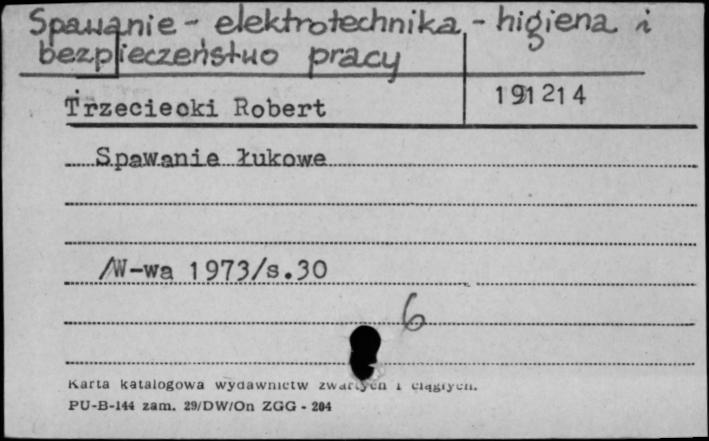 Spawanie - elektrotechnika - higiena i
bezpieczeństwo pracy
Trzeciecki Robert
191214
Spawanie łukowe
/W-wa 1973/s.30
6
Karta katalogowa wydawnictw zwartych i ciągłych.
PU-B-144 zam. 29/DW/On ZGG - 204